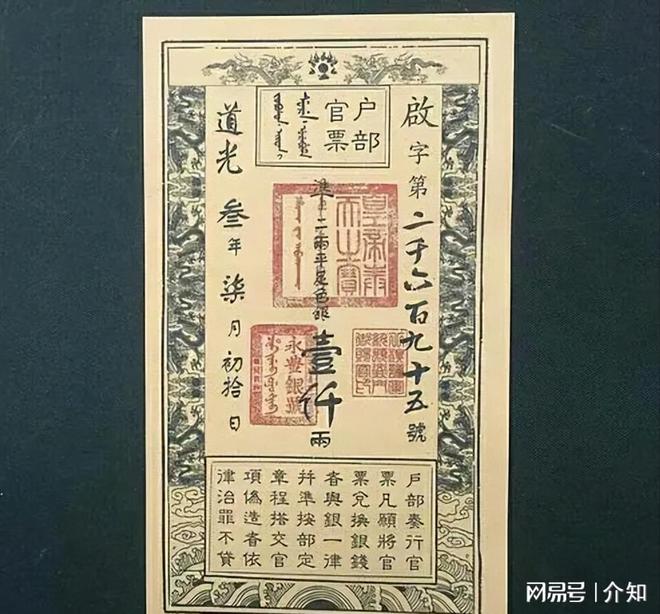 戶部
官票
啟字第二千六百九十五號
準二兩平足色銀壹仟兩
道光叁年柒月初拾日
皇帝奉
天之寶
永豐銀號
戶部奏行官
票凡願將官
票兌換銀錢
者與銀一律
并準按部定
章程搭交官
項偽造者依
律治罪不貸
网易号 | 介知